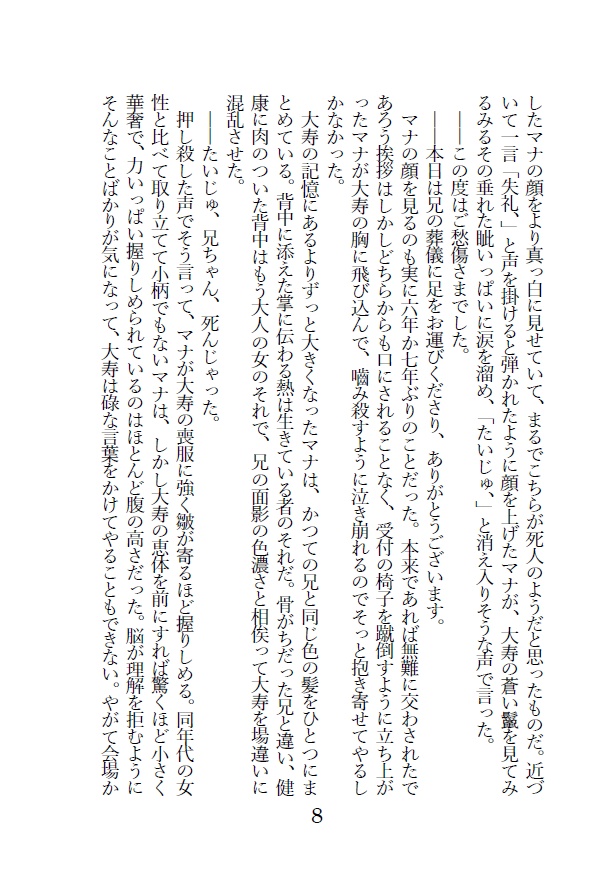 したマナの顔をより真っ白に見せていて、まるでこちらが死人のようだと思ったものだ。近づ
いて一言「失礼、」と声を掛けると弾かれたように顔を上げたマナが、大寿の蒼い鬣を見てみ
るみるその垂れた眦いっぱいに涙を溜め、「たいじゅ、」と消え入りそうな声で言った。
――この度はご愁傷さまでした。
――本日は兄の葬儀に足をお運びくださり、ありがとうございます。
マナの顔を見るのも実に六年か七年ぶりのことだった。本来であれば無難に交わされたで
あろう挨拶はしかしどちらからも口にされることなく、受付の椅子を蹴倒すように立ち上が
ったマナが大寿の胸に飛び込んで、嚙み殺すように泣き崩れるのでそっと抱き寄せてやるし
かなかった。
大寿の記憶にあるよりずっと大きくなったマナは、かつての兄と同じ色の髪をひとつにま
とめている。背中に添えた掌に伝わる熱は生きている者のそれだ。骨がちだった兄と違い、健
康に肉のついた背中はもう大人の女のそれで、兄の面影の色濃さと相俟って大寿を場違いに
混乱させた。
――たいじゅ、兄ちゃん、死んじゃった。
押し殺した声でそう言って、マナが大寿の喪服に強く皺が寄るほど握りしめる。同年代の女
性と比べて取り立てて小柄でもないマナは、しかし大寿の恵体を前にすれば驚くほど小さく
華奢で、力いっぱい握りしめられているのはほとんど腹の高さだった。脳が理解を拒むように
そんなことばかりが気になって、大寿は碌な言葉をかけてやることもできない。やがて会場か
8